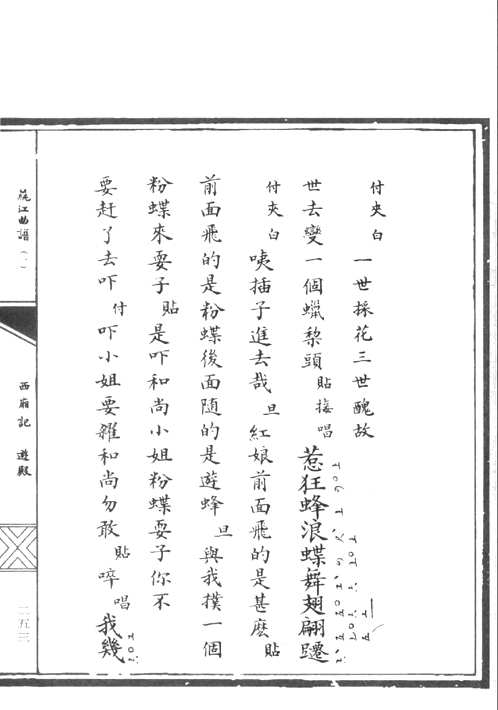 付夾白 一世採花三世醜故
世去變一個蠟梨頭 貼接唱 惹狂蜂浪蝶舞翅翩躚
付夾白 咦插子進去哉 旦 紅娘前面飛的是甚麽 貼
前面飛的是粉蝶後面隨的是遊蜂 旦 與我撲一個
粉蝶來耍子 貼 是吓和尚小姐粉蝶耍子你不
要赶了去吓 付 吓小姐要雜和尚勿敢 貼 啐 唱 我幾
江曲譜(一)
西廂記 遊殿
二五三